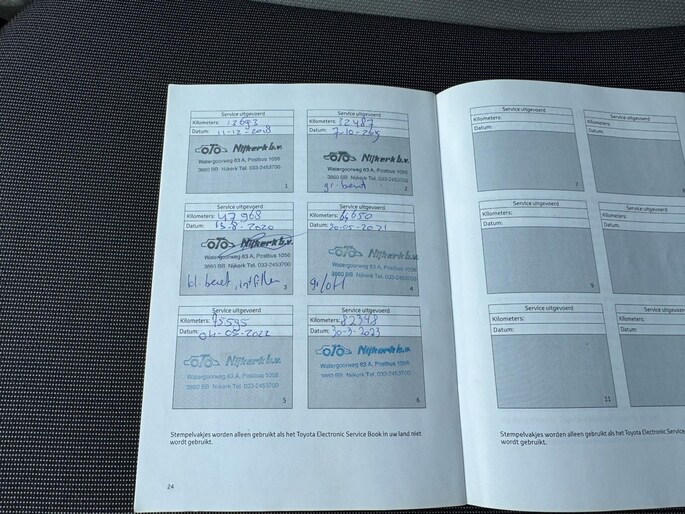 Service uitgevoerd
Kilometers: 12693
Datum: 11-12-2018
OTO Nijkerk b.v.
Watergoorweg 63 A, Postbus 1056
3860 BB Nijkerk Tel. 033-2453700
1
Service uitgevoerd
Kilometers: 32487
Datum: 7-10-2019
OTO Nijkerk b.v.
Watergoorweg 63 A, Postbus 1056
3860 BB Nijkerk Tel. 033-2453700
gr. beurt
2
Service uitgevoerd
Kilometers: 47968
Datum: 13-8-2020
OTO Nijkerk b.v.
Watergoorweg 63 A, Postbus 1056
3860 BB Nijkerk Tel. 033-2453700
kl beurt, intfilter
3
Service uitgevoerd
Kilometers: 64650
Datum: 20-05-2021
OTO Nijkerk b.v.
Watergoorweg 63 A, Postbus 1056
3860 BB Nijkerk Tel. 033-2453700
4
Service uitgevoerd
Kilometers: 75595
Datum: 04-05-2022
OTO Nijkerk b.v.
Watergoorweg 63 A, Postbus 1056
3860 BB Nijkerk Tel. 033-2453700
5
Service uitgevoerd
Kilometers: 82348
Datum: 30-3-2023
OTO Nijkerk b.v.
Watergoorweg 63 A, Postbus 1056
3860 BB Nijkerk Tel. 033-2453700
6
Stempelvakjes worden alleen gebruikt als het Toyota Electronic Service Book in uw land niet
wordt gebruikt.
24
Service uitgevoerd
Kilometers:
Datum:
7
Kilometers:
Datum:
Service uitgevoerd
Kilometers:
Datum:
9
Kilometers:
Datum:
Service uitgevoerd
Kilometers:
Datum:
11
Kilometers:
Datum:
Stempelvakjes worden alleen gebruikt als het Toyota Electronic Service
wordt gebruikt.